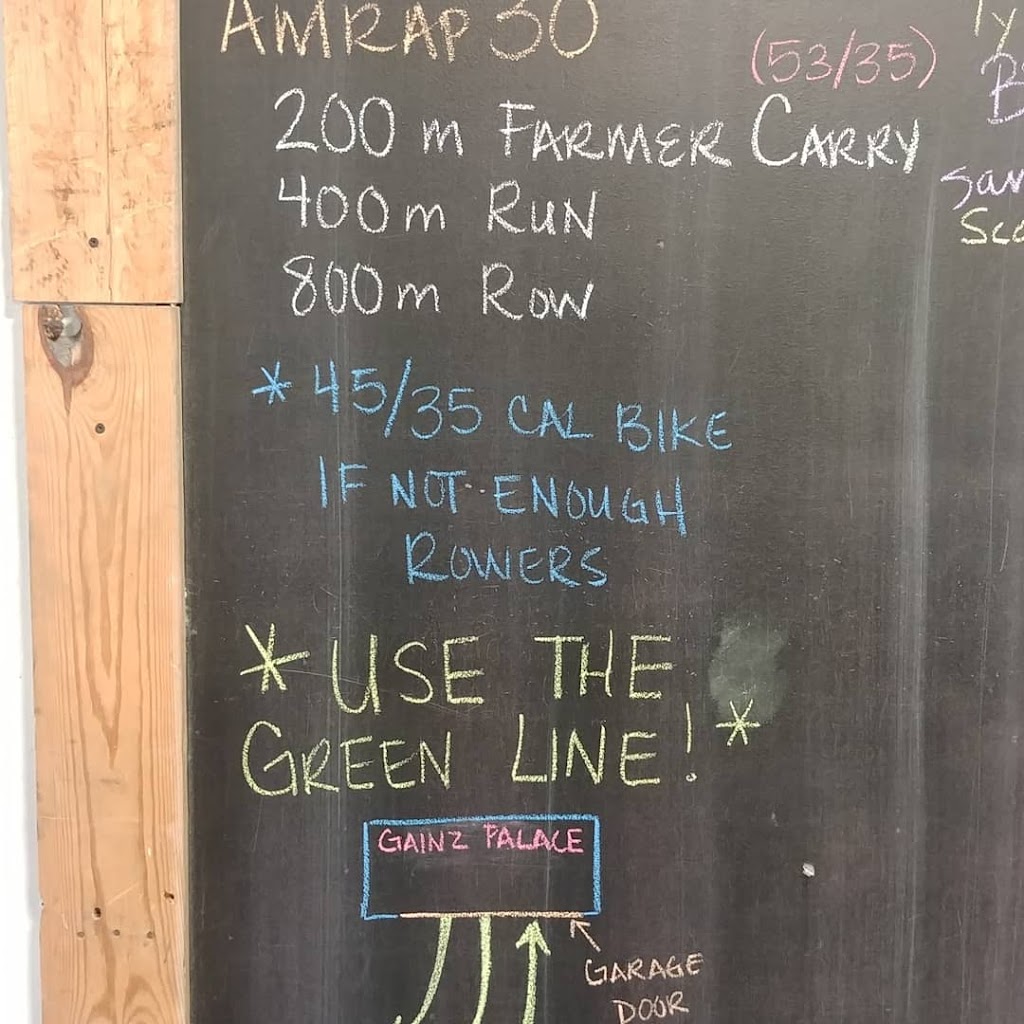 AMRAP 30
(53/35)
200 m FARMER CARRY
400 m RUN
800 m ROW
* 45/35 CAL BIKE
IF NOT ENOUGH
ROWERS
* USE THE
GREEN LINE! *
GAINZ PALACE
GARAGE
DOOR